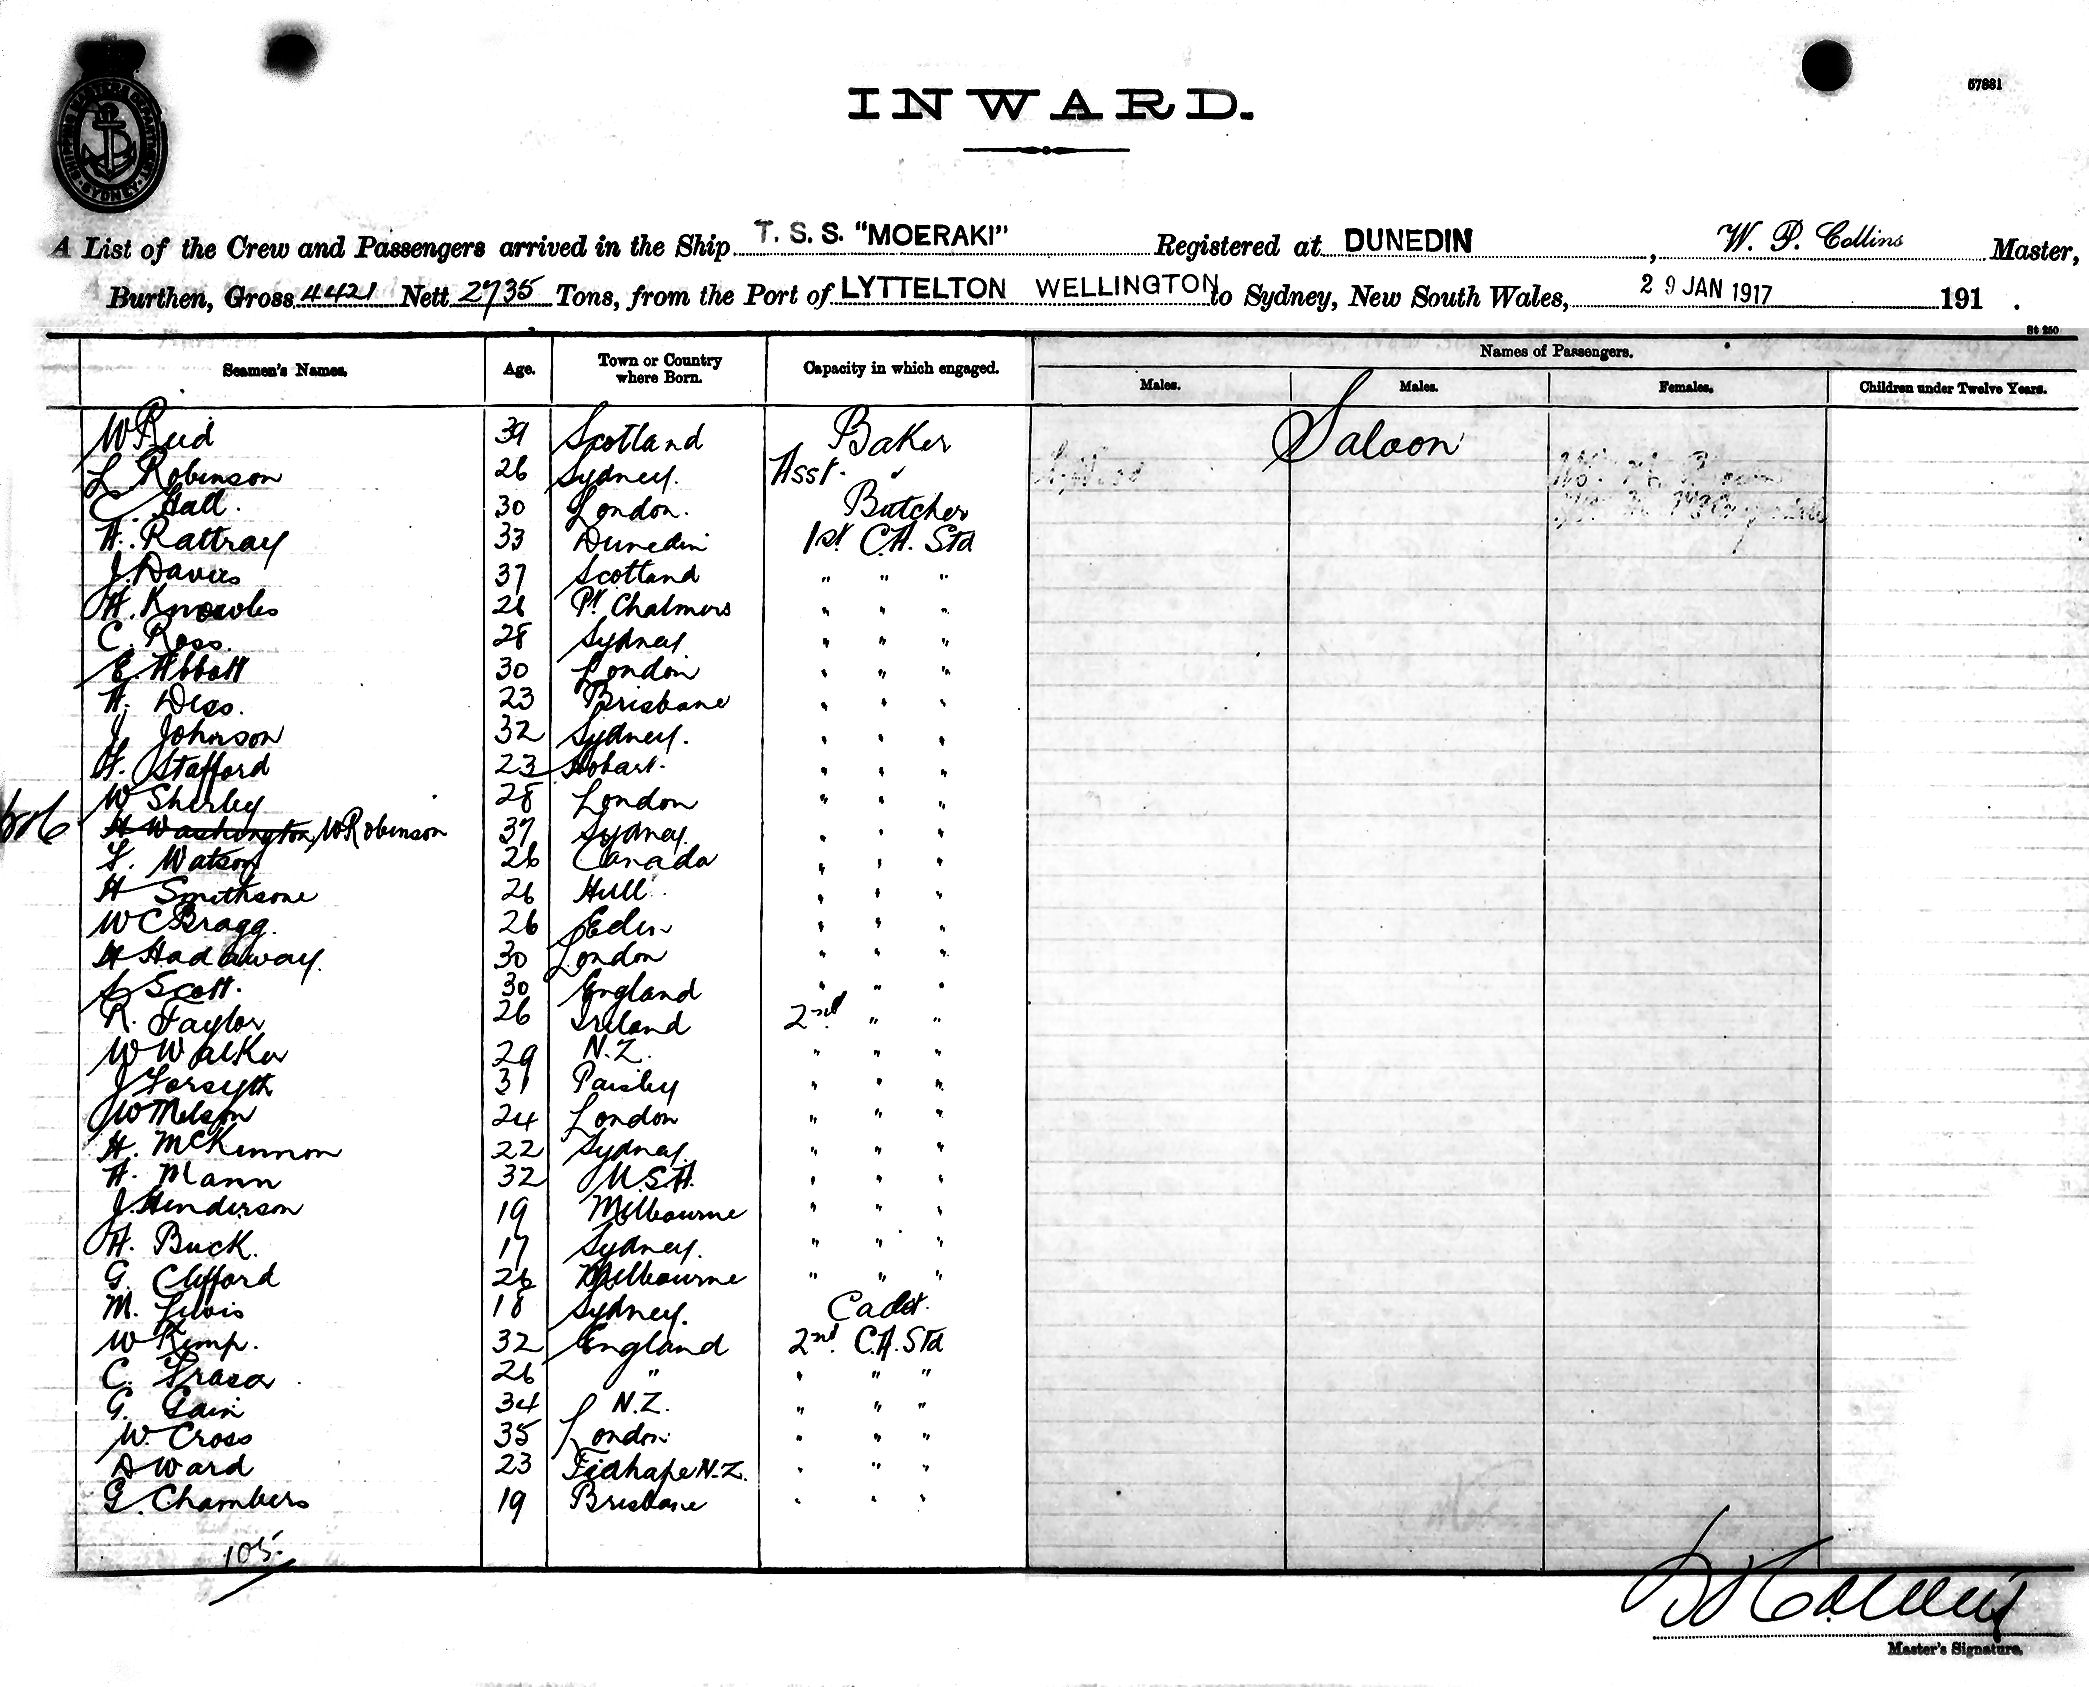 INWARD.
57881
SHIPPING MASTERS DEPARTMENT SYDNEY
A List of the Crew and Passengers arrived in the Ship T. S. S. "MOERAKI" Registered at DUNEDIN, W. P. Collins Master,
Burthen, Gross 4421 Nett 2735 Tons, from the Port of LYTTELTON WELLINGTON to Sydney, New South Wales, 29 JAN 1917 191 .
St 250
Seamen's Names. Age. Town or Country where Born. Capacity in which engaged. Names of Passengers.
Males. Males. Females. Children under Twelve Years.
Saloon
W Reid 39 Scotland Baker
L Robinson 26 Sydney. Asst. "
C. Hall. 30 London. Butcher
H. Rattray 33 Dunedin 1st C.H. Std
J. Davis 37 Scotland " " "
H. Knowles 26 Pt Chalmers " " "
C. Ross. 28 Sydney " " "
E Abbott 30 London " " "
H. Dess. 23 Brisbane " " "
J Johnson 32 Sydney. " " "
F. Stafford 23 Hobart. " " "
W Sherley 28 London " " "
H Washington, W Robinson 37 Sydney. " " "
Watson 26 Canada " " "
H Smithsone 26 Hull " " "
W C Bragg. 26 Eden " " "
H Hadaway. 30 London " " "
Scott. 30 England " " "
R. Taylor 26 Ireland 2nd " "
W Walker 29 N.Z. " " "
J Forsyth 31 Paisley " " "
W Melson 24 London " " "
H. McKinnon 22 Sydney. " " "
H. Mann 32 U.S.A. " " "
J. Henderson 19 Melbourne " " "
H. Buck. 17 Sydney. " " "
G. Clifford 26 Melbourne " " "
M. Lewis 18 Sydney. Cadet.
W Kemp. 32 England 2nd C.H. Std
C. 26 " " " "
G. Gain 34 N.Z. " " "
W. Cross 35 London " " "
A Ward 23 Tiahape N.Z. " " "
G. Chambers 19 Brisbane " " "
105.
W P Collins
Master's Signature.